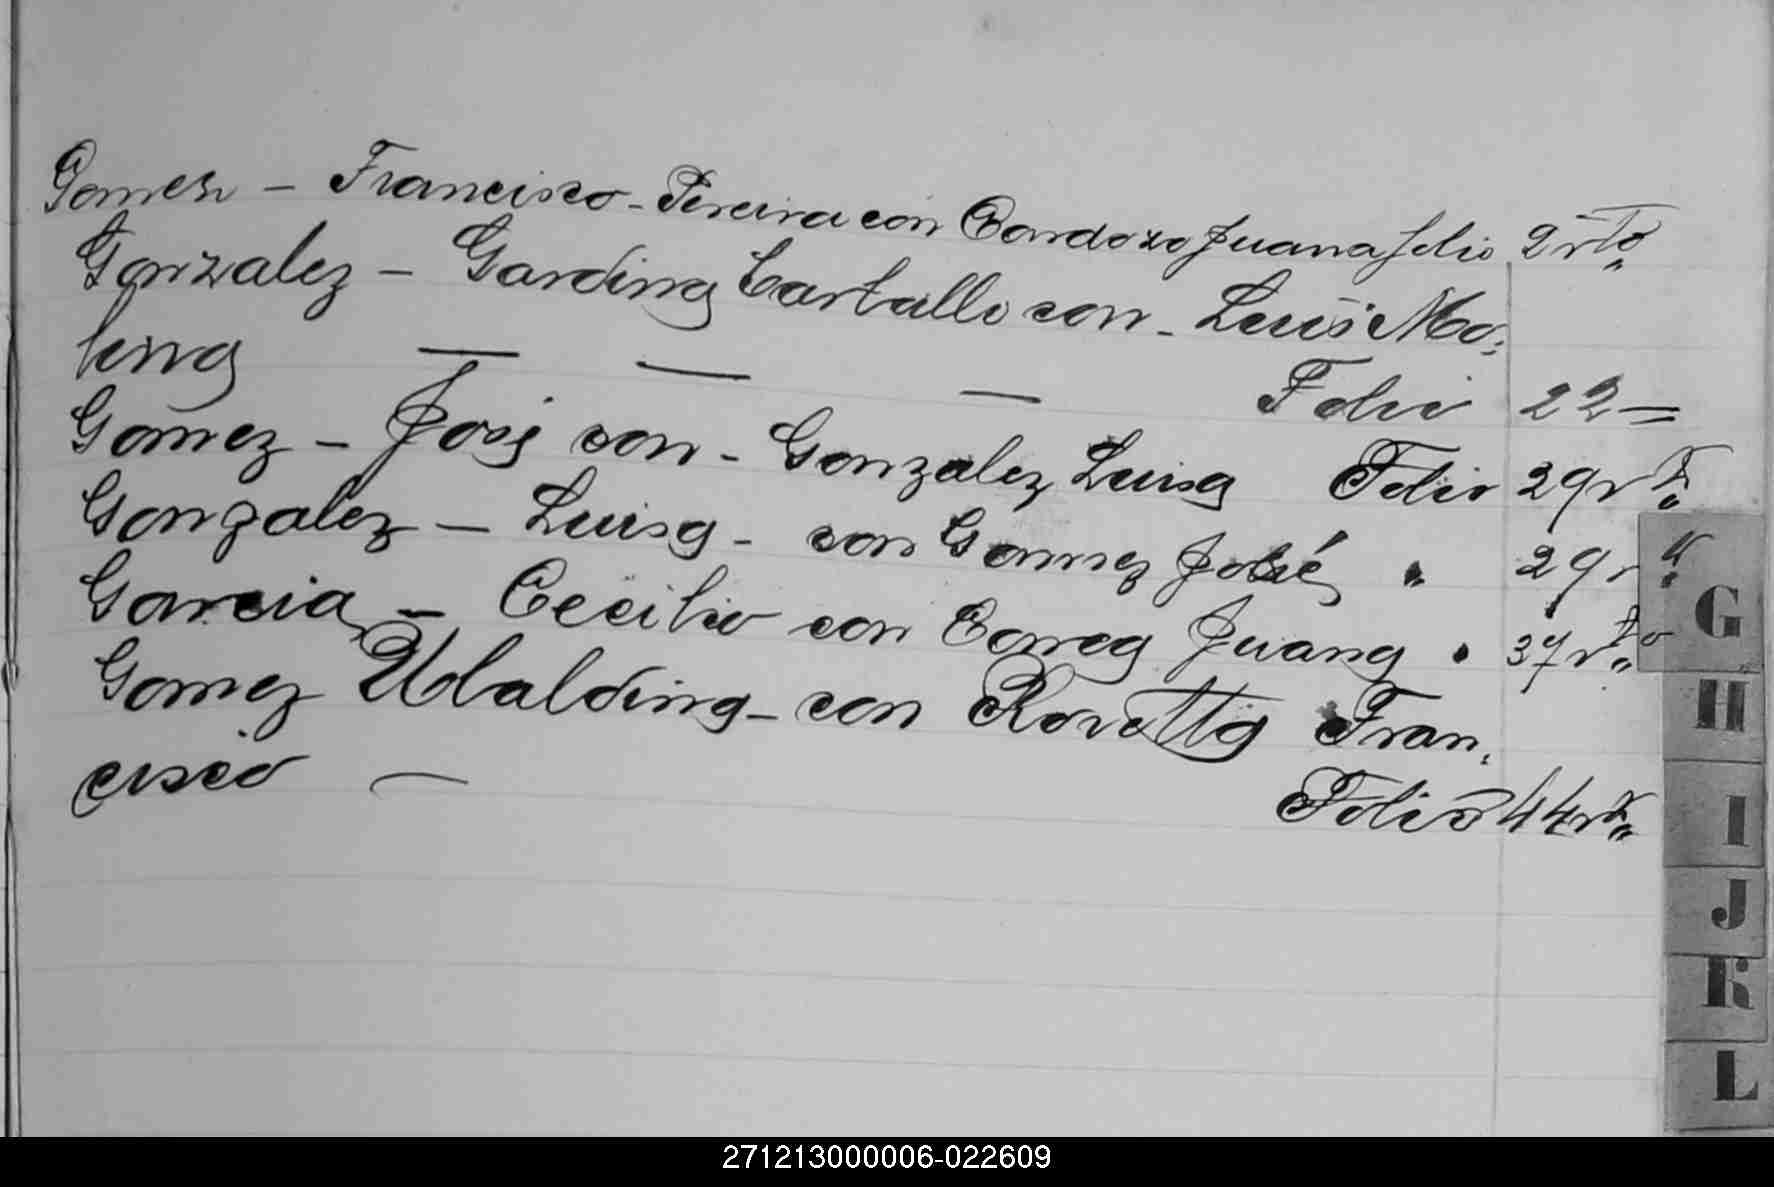 Gomez - Francisco - Pereira con Cardozo Juana folio 2 vto
Gonzalez - Gardina Cartallo con - Luis Mo-
lina — — — Folio 22 =
Gomez - José con - Gonzalez Luisa Folio 29 vto
Gonzalez - Luisa - con Gomez José " 29 vto
Garcia - Cecilio con Correa Juana " 37 vto
Gomez Ubaldina - con Rovetta Fran-
cisco — Folio 44 vto
G
H
I
J
K
L
271213000006-022609